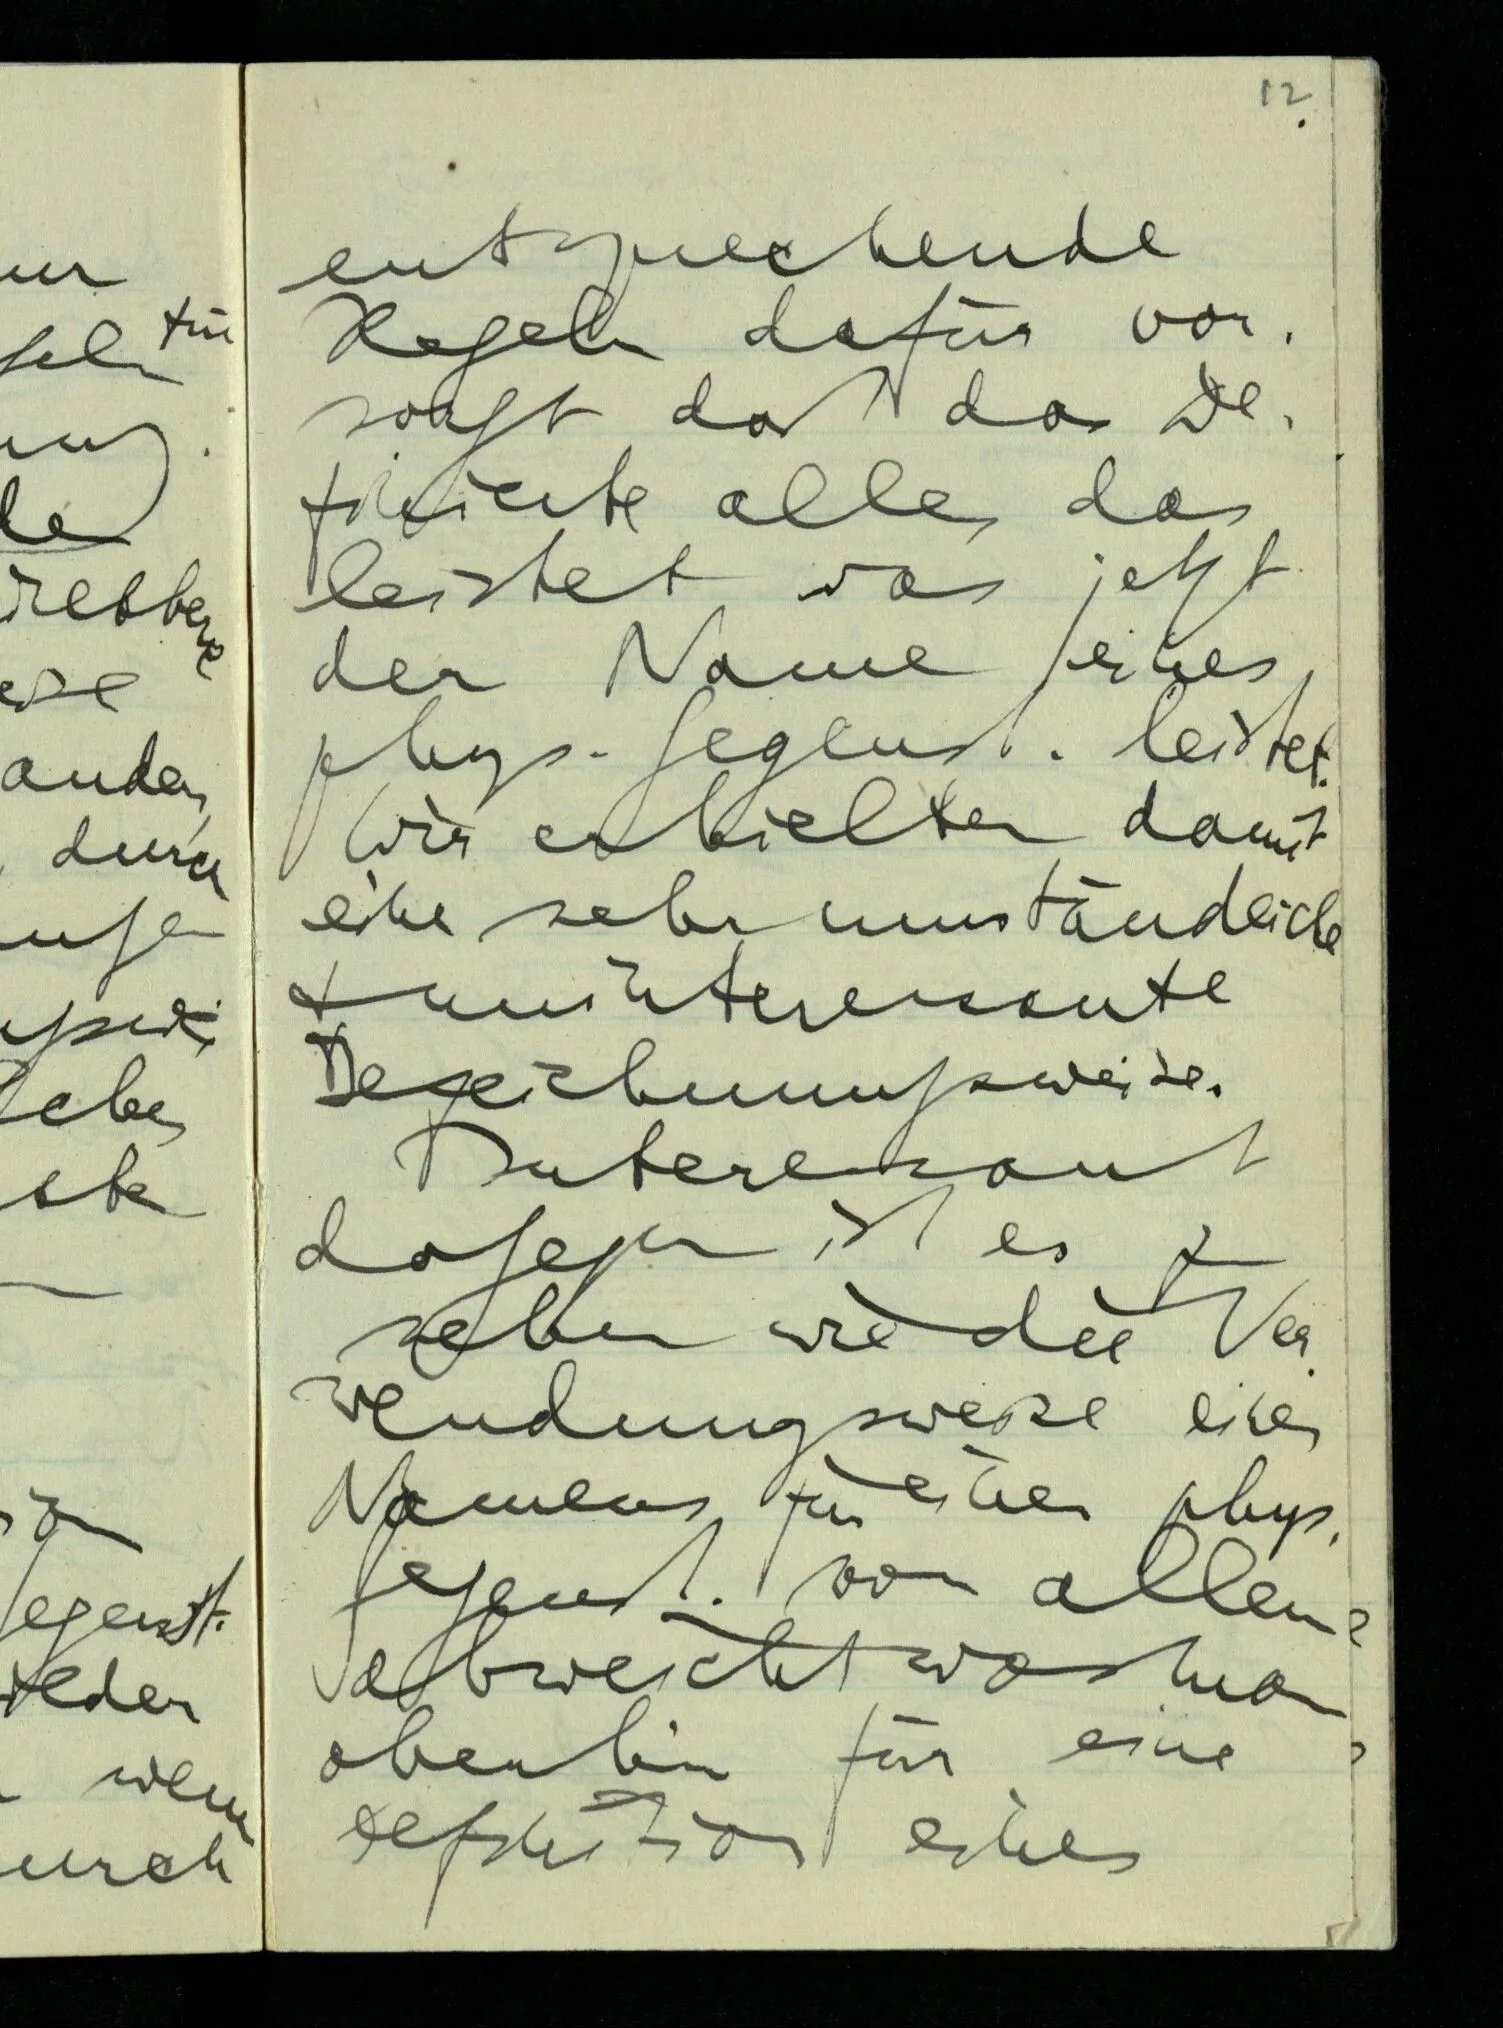 12.
entsprechende
Regeln dafür vor.
sorgt daß das De.
finierte alles das
leistet was jetzt
der Name eines
phys. Gegenst. leistet.
Wir erhielten damit
eine sehr umständliche
+ uninteressante
Bezeichnungsweise.
Interessant
dagegen ist es zu
sehen wie die Ver.
wendungsweise eines
Namens für einen phys.
Gegenst. von allem
abweicht was man
obenhin für eine
Definition eines
ur
für
de
anders
durch
eder
wenn
urch